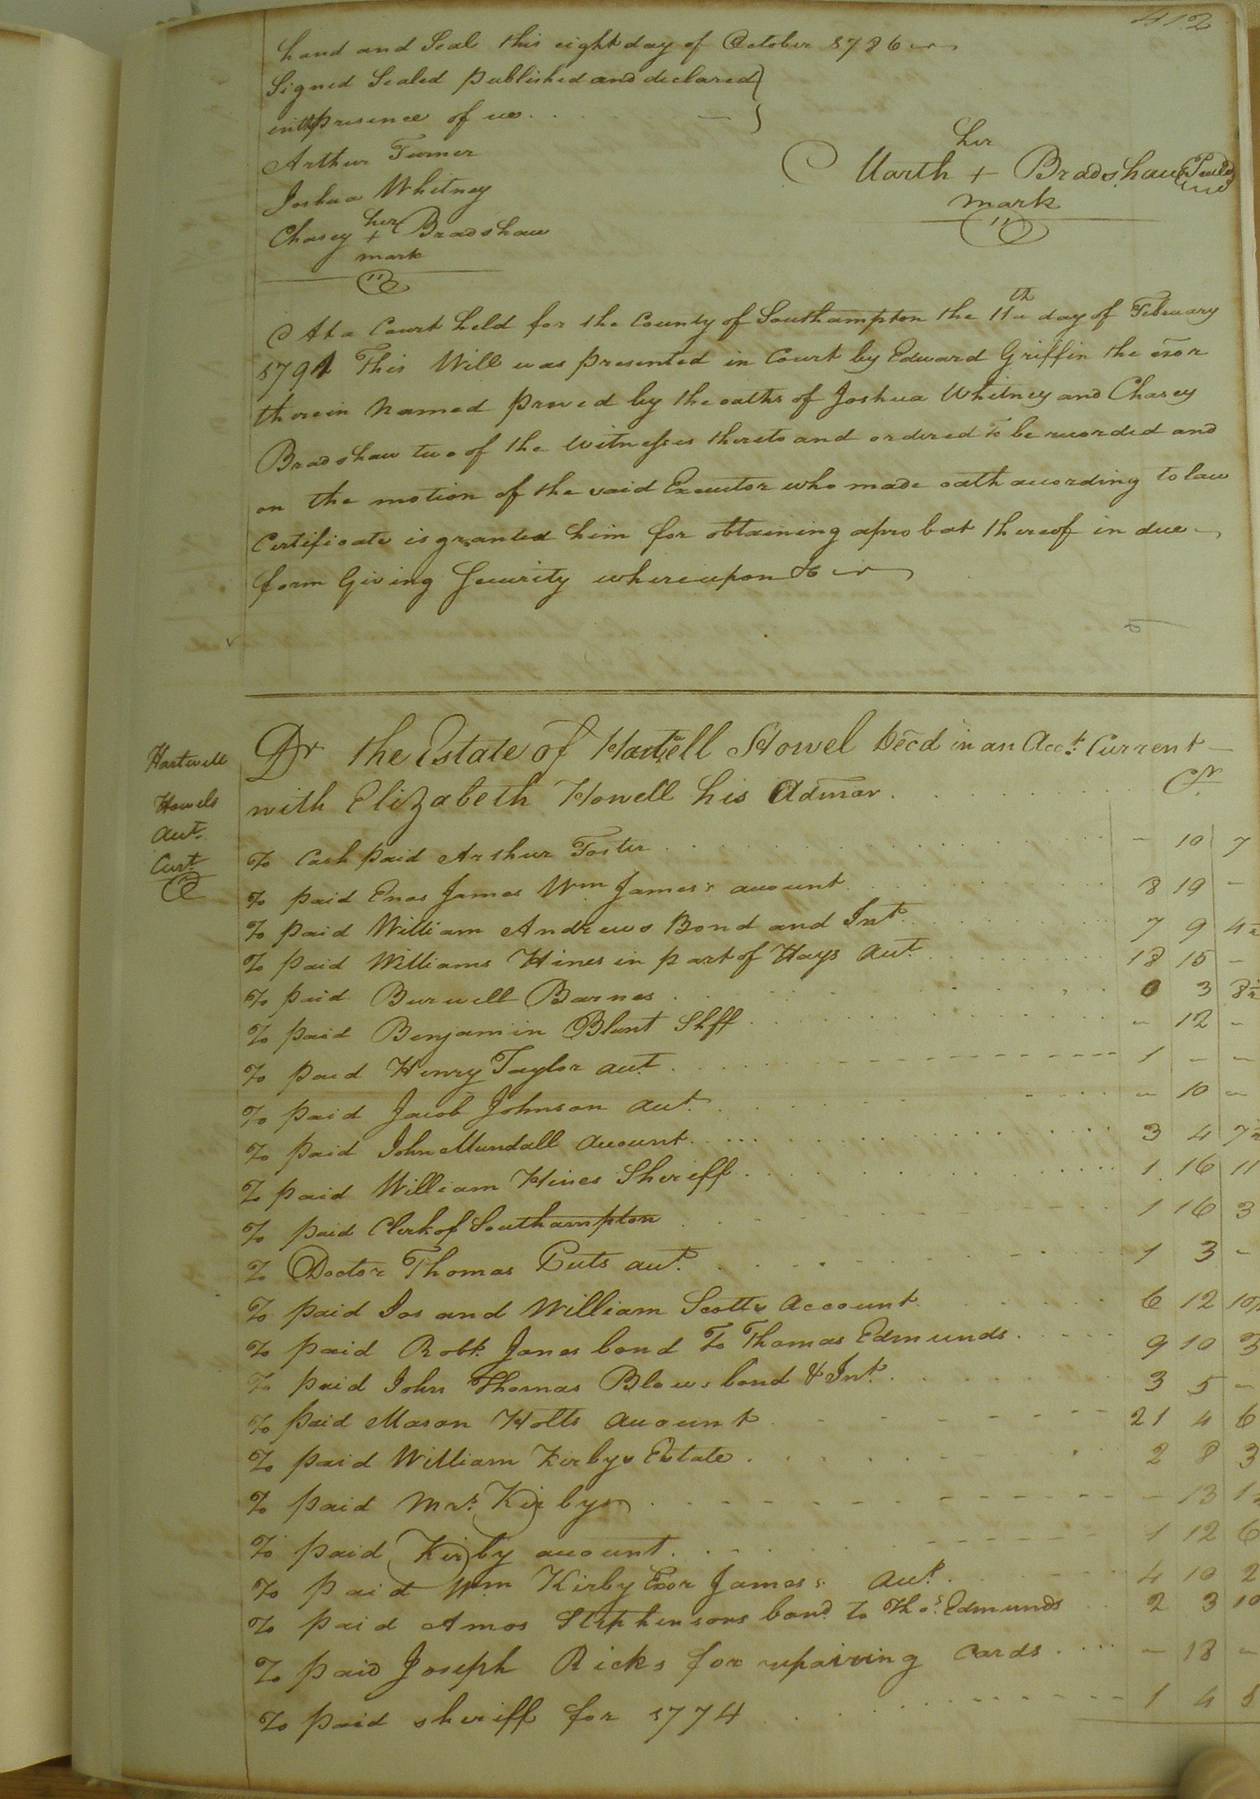 412
hand and Seal this eight day of October 1786
Signed Sealed Published and declared
in the presence of us
Arthur Turner
Joshua Whitney
her
Chasey + Bradshaw
mark
her
Marth + Bradshaw (Seal)
mark
At a Court held for the County of Southampton the 11th day of February
1791 This Will was presented in Court by Edward Griffin the exor
therein Named proved by the oaths of Joshua Whitney and Chasey
Bradshaw two of the Witnesses thereto and ordered to be recorded and
on the motion of the said Executor who made oath according to law
Certificate is granted him for obtaining a probat thereof in due
form Giving Security whereupon &c
Hartwell
Howels
Acct.
Curt
Dr the Estate of Hartwell Howel Decd in an Acct. Current
Cr.
with Elizabeth Howell his Admor.
To Cash paid Arthur Foster - 10 7
To paid Enos James Wm James's account 8 19 -
To paid William Andrews Bond and Int. 7 9 4½
To paid Williams Hines in part of Hays Acct. 18 15 -
To paid Burwell Barnes 0 3 8½
To paid Benjamin Blunt Shff - 12 -
To paid Henry Taylor acct. 1 - -
To paid Jacob Johnson acct. - 10 -
To paid John Mundall account 3 4 7½
To paid William Hines Sheriff 1 16 11
To paid Clerk of Southampton 1 16 3
To Doctor Thomas Peets acct. 1 3 -
To paid Jos and William Scotts Account 6 12 10½
To paid Robt. Jones bond To Thomas Edmunds 9 10 3
To paid John Thomas Blows bond & Int. 3 5 -
To paid Mason Holts account 21 4 6
To paid William Kirbys Estate 2 8 3
To paid Mrs. Kirbys - 13 1½
To paid Kirby account 1 12 6
To paid Wm Kirby Exor James's acct. 4 10 2
To paid Amos Stephensons bond to Thos. Edmunds 2 3 10
To paid Joseph Ricks for repairing Cards - 18 -
To paid sheriff for 1774 1 4 8